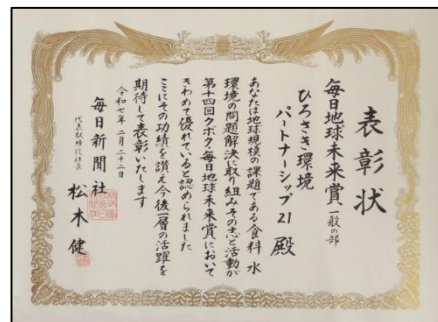 表彰状
毎日地球未来賞 一般の部
ひろさき環境
パートナーシップ21 殿
あなたは地球規模の課題である食料 水
環境の問題解決に取り組みその志と活動が
第十四回クボタ・毎日地球未来賞において
きわめて優れていると認められました
ここにその功績を讃え今後一層の活躍を
期待して表彰いたします
令和七年二月二十二日
毎日新聞社
代表取締役社長 松木健